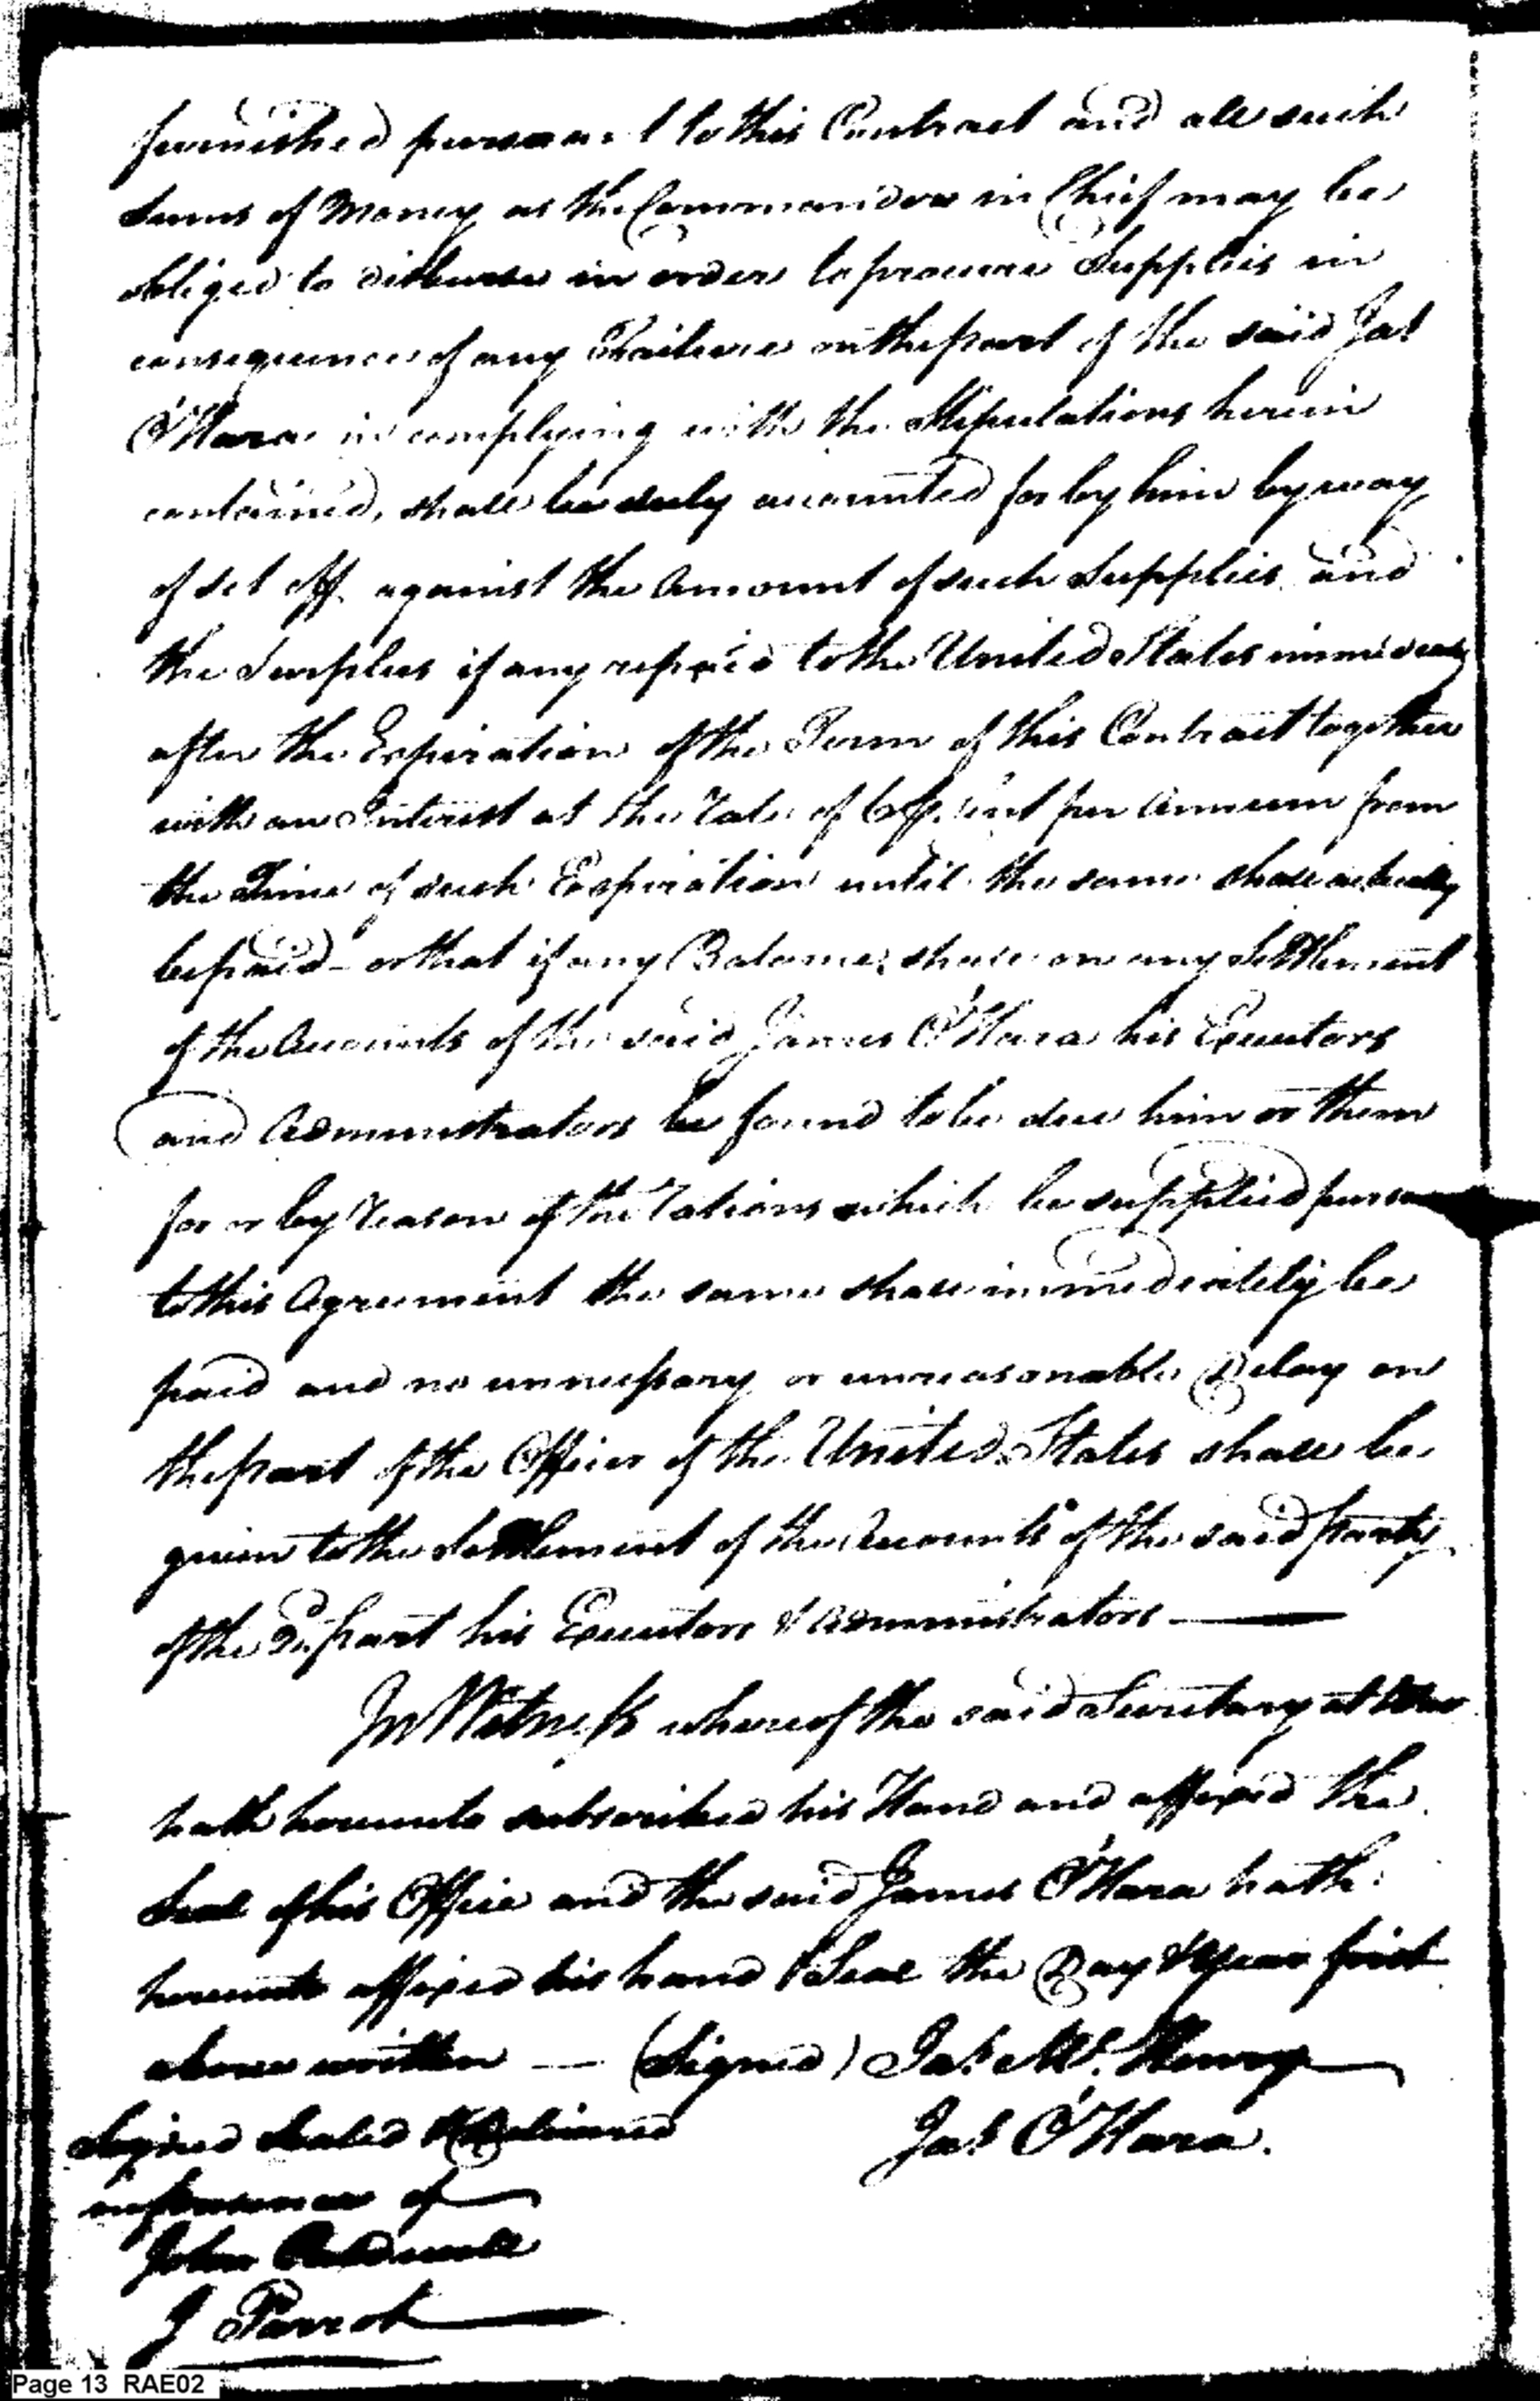 furnished pursuant to this Contract and all such
Sums of Money as the Commander in Chief may be
obliged to disburse in order to procure Supplies in
consequence of any Failure on the part of the said Jas
O'Hara in complying with the Stipulations herein
contained, shall be duly accounted for by him by way
of set off against the Amount of such Supplies and
the Surplus if any repaid to the United States immediately
after the Expiration of the Term of this Contract together
with an Interest at the rate of 6 pr. Cent per Annum from
the Time of such Expiration until the same shall actually
be paid - or that if any Balance shall on any Settlement
of the Accounts of the said James O'Hara his Executors
and Administrators be found to be due him or them
for or by reason of the rations which be supplied
to this Agreement the same shall immediately be
paid and no unnecessary or unreasonable Delay on
the part of the Officer of the United States shall be
given to the Settlement of the Accounts of the said party
of the part his Executors & Administrators —
In Witness whereof the said Secretary at War
hath hereunto subscribed his Hand and affixed the
Seal of his Office and the said James O'Hara hath
hereunto affixed his hand & Seal the Day & Year first
above written — (Signed) Jas Mc. Henry
Signed Sealed & Delivered
Jas O'Hara.
in presence of
John Caldwell
J Parrot
Page 13 RAE02